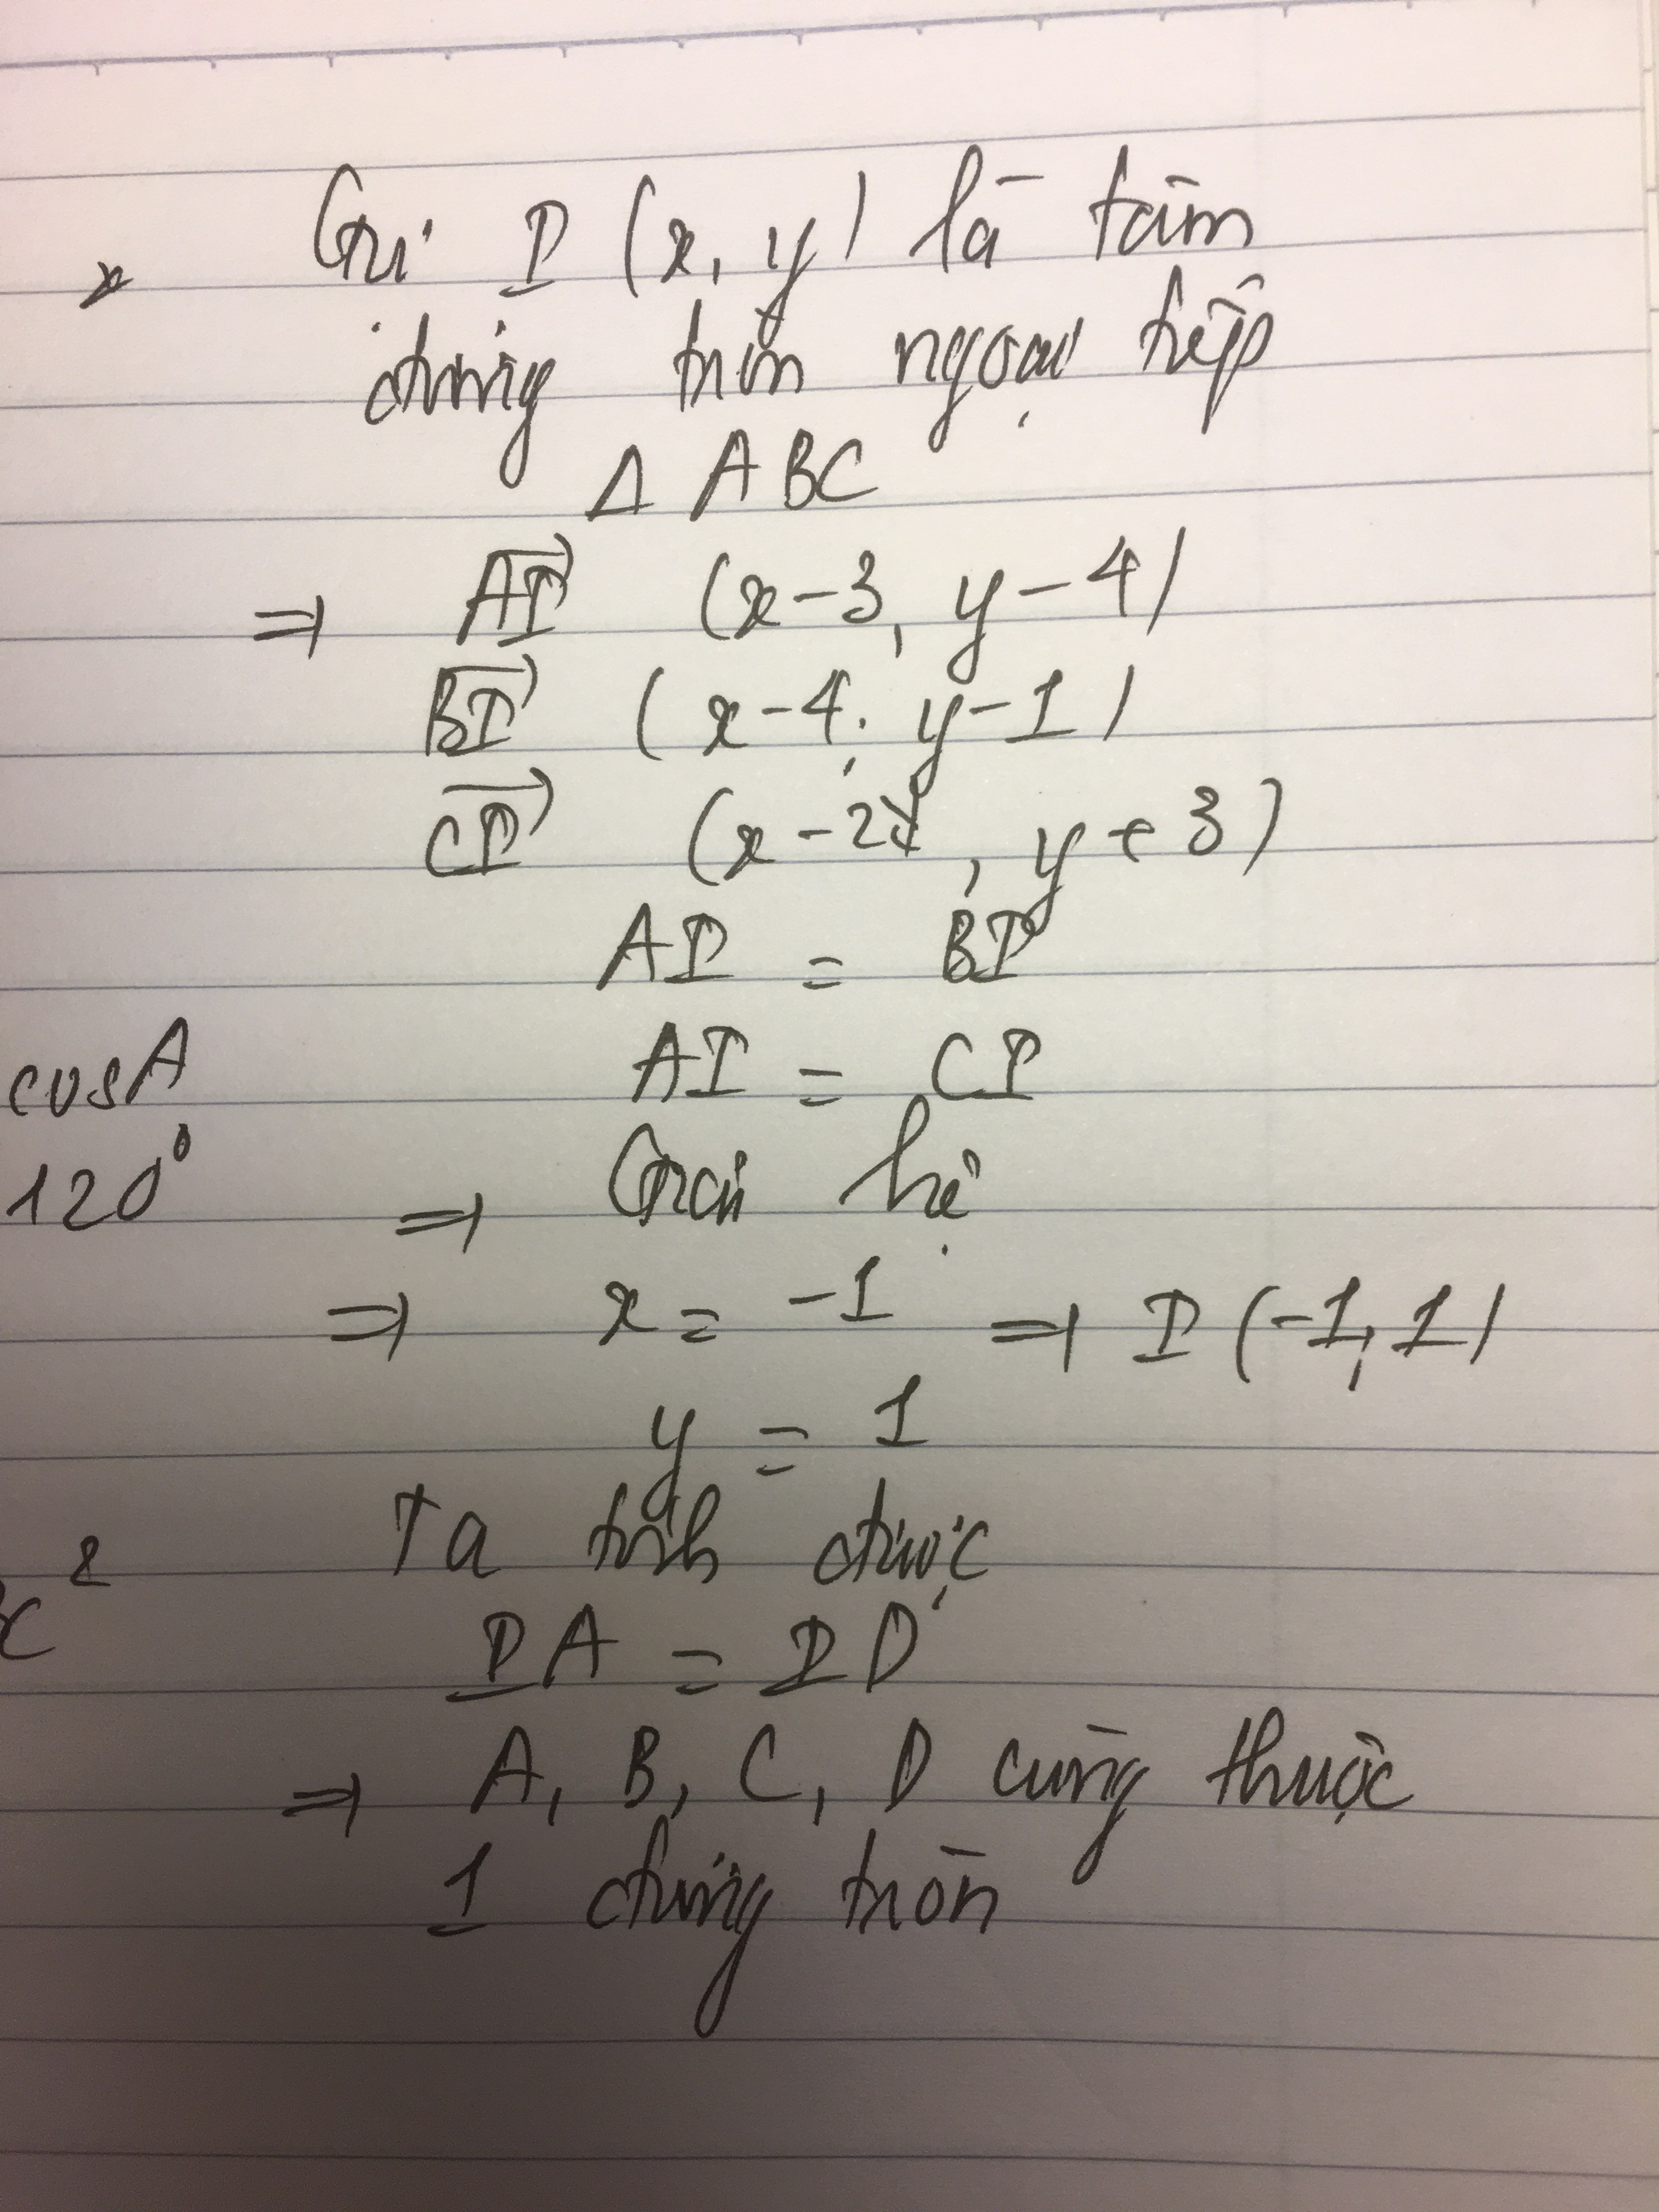 Gọi I (x, y) là tâm
đường tròn ngoại tiếp
Δ ABC
⇒ AI→ (x-3, y-4)
BI→ (x-4; y-1)
CI→ (x-2, y+3)
AI = BI
cosA
AI = CI
120°
⇒ Giải hệ
⇒ x = -1 ⇒ I (-1, 1)
y = 1
Ta tính được
C²
IA = ID
⇒ A, B, C, D cùng thuộc
1 đường tròn